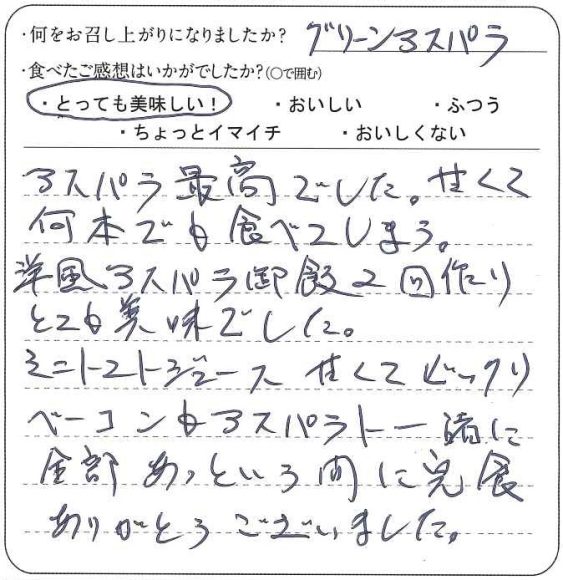 ・何をお召し上がりになりましたか? グリーンアスパラ
・食べたご感想はいかがでしたか?(○で囲む)
・とっても美味しい! ・おいしい ・ふつう
・ちょっとイマイチ ・おいしくない
アスパラ最高でした。甘くて
何本でも食べてしまう。
洋風アスパラ御飯2回作り
とても美味でした。
ミニトマトジュース 甘くてビックリ
ベーコンもアスパラト一緒に
全部あっという間に完食
ありがとうございました。